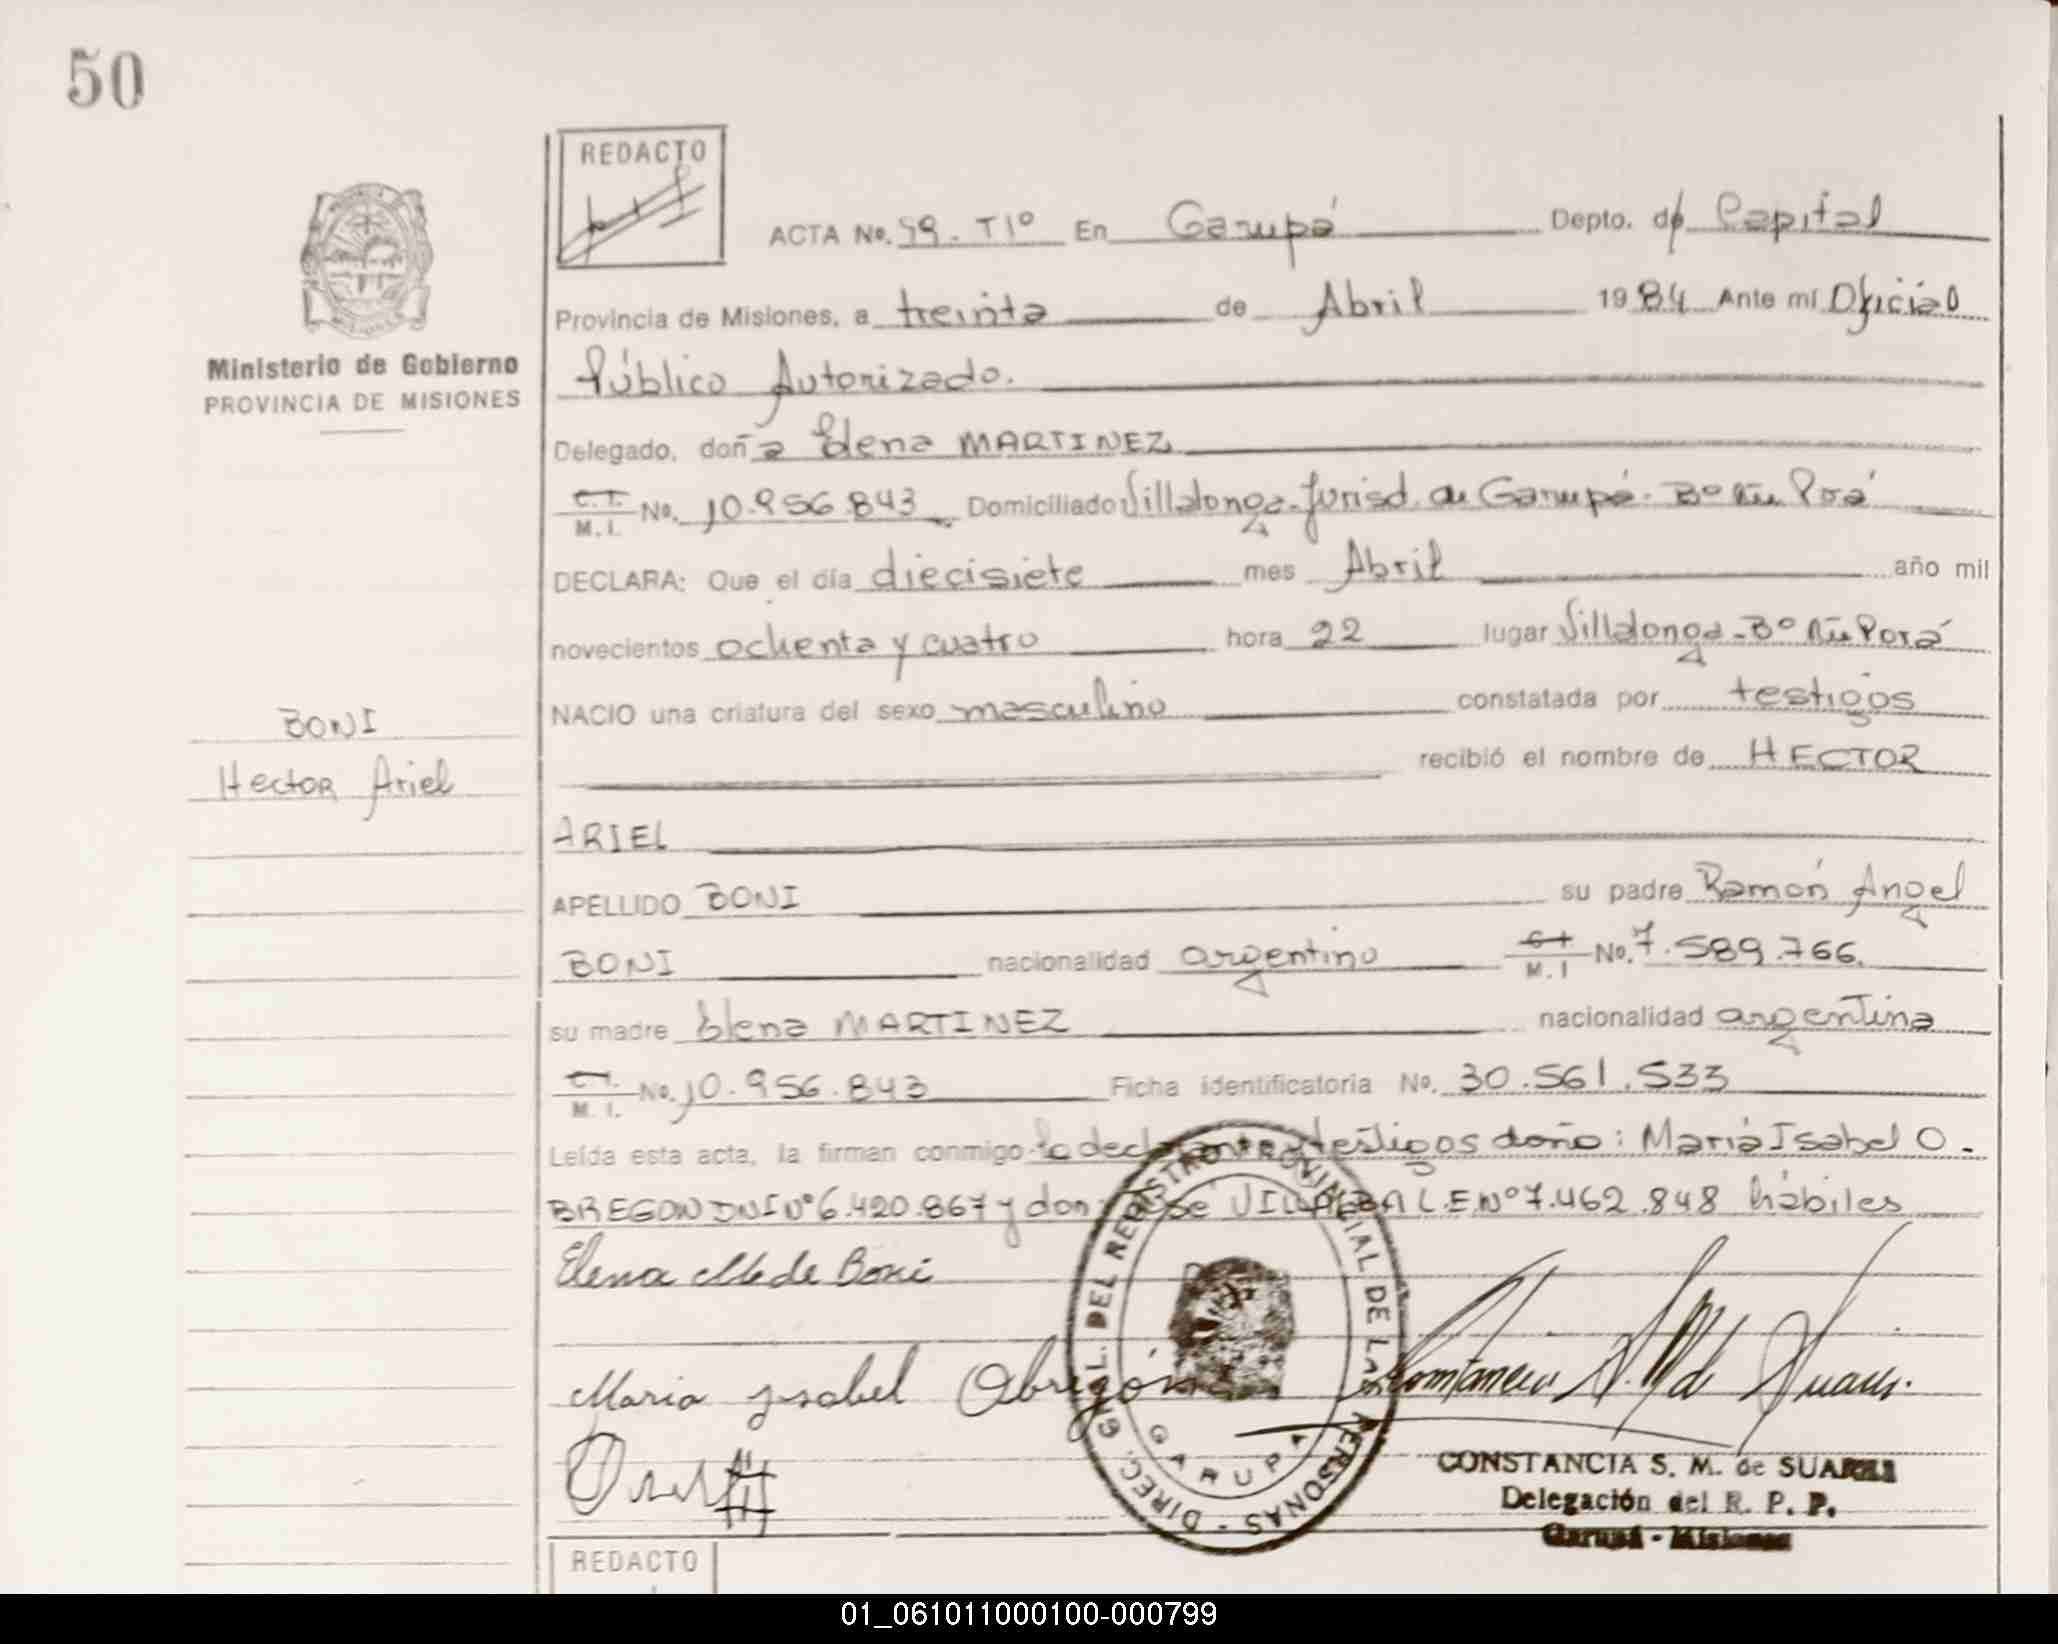 50
REDACTO
ACTA No. 99 - T1º En Garupá Depto. de Capital
Provincia de Misiones, a treinta de Abril 1984 Ante mí Oficial
Público Autorizado.
Ministerio de Gobierno
PROVINCIA DE MISIONES
Delegado, doña Elena MARTINEZ
C.I. M.I. No. 10.956.843 Domiciliado Villalonga - Jurisd. de Garupá - Bº Ñu Porá
DECLARA: Que el día diecisiete mes Abril año mil
novecientos ochenta y cuatro hora 22 lugar Villalonga - Bº Ñu Porá
NACIO una criatura del sexo masculino constatada por testigos
BONI
recibió el nombre de HECTOR
Hector Ariel
ARIEL
APELLIDO BONI su padre Ramón Angel
BONI nacionalidad argentino C.I. M.I No. 7.589.766.
su madre Elena MARTINEZ nacionalidad argentina
C.I. M.I. No. 10.956.843 Ficha identificatoria No. 30.561.533
Leída esta acta, la firman conmigo la declarante y testigos doña: María Isabel O-
BREGON DNI Nº 6.420.867 y don José VILLALBA L.E. Nº 7.462.848 hábiles
Elena M de Boni
María Isabel Obregón
DIREC. GRAL. DEL REGISTRO PROVINCIAL DE LAS PERSONAS -
GARUPA
CONSTANCIA S. M. de SUAREZ
Delegación del R. P. P.
Garupá - Misiones
REDACTO
01_061011000100-000799